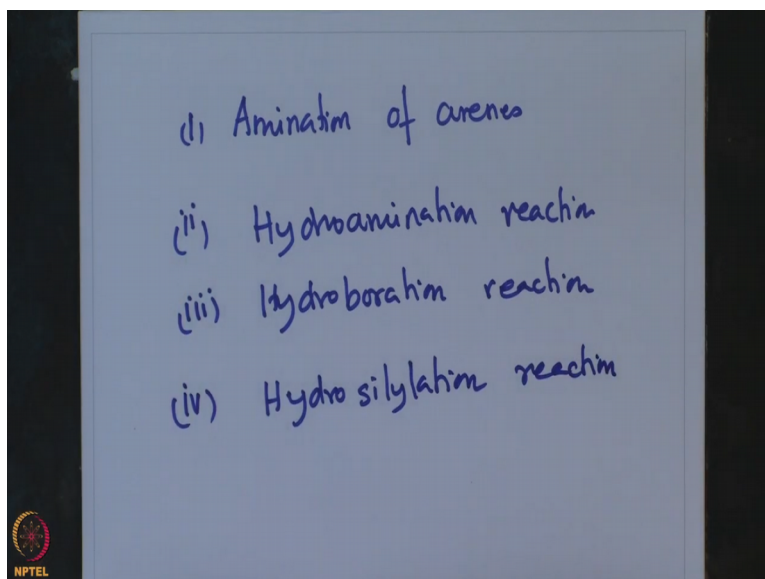 (1) Amination of arenes
(ii) Hydroamination reaction
(iii) Hydroboration reaction
(iv) Hydrosilylation reaction
NPTEL